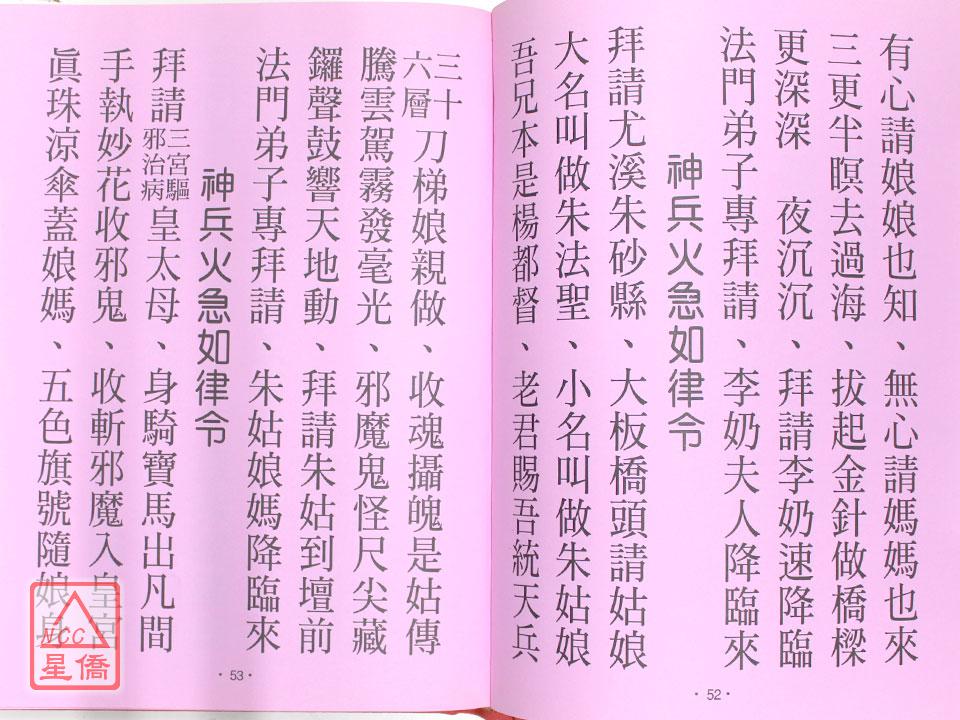 有心請娘娘也知、無心請媽媽也來
三更半暝去過海、拔起金針做橋樑
更深深　夜沉沉、拜請李奶速降臨
法門弟子專拜請、李奶夫人降臨來
神兵火急如律令
拜請尤溪朱砂縣、大板橋頭請姑娘
大名叫做朱法聖、小名叫做朱姑娘
吾兄本是楊都督、老君賜吾統天兵
·52·
三十六層刀梯娘親做、收魂攝魄是姑傳
騰雲駕霧發毫光、邪魔鬼怪尺尖藏
鑼聲鼓響天地動、拜請朱姑到壇前
法門弟子專拜請、朱姑娘媽降臨來
神兵火急如律令
拜請三宮驅邪治病皇太母、身騎寶馬出凡間
手執妙花收邪鬼、收斬邪魔入皇宮
眞珠涼傘蓋娘媽、五色旗號隨娘身
·53·
NCC
星僑